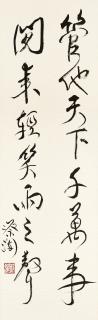 管他天下千萬事
閑來輕笑兩三聲
蔡瀾